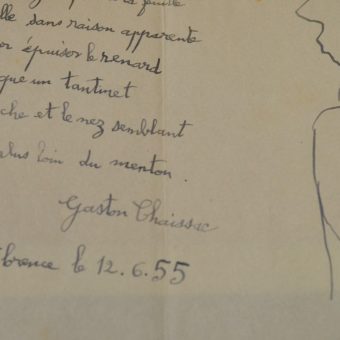 feuille
lle sans raison apparente
or épuiser le renard
que un tantinet
che et le nez semblant
plus loin du menton.
Gaston Chaissac
florence le 12.6.55